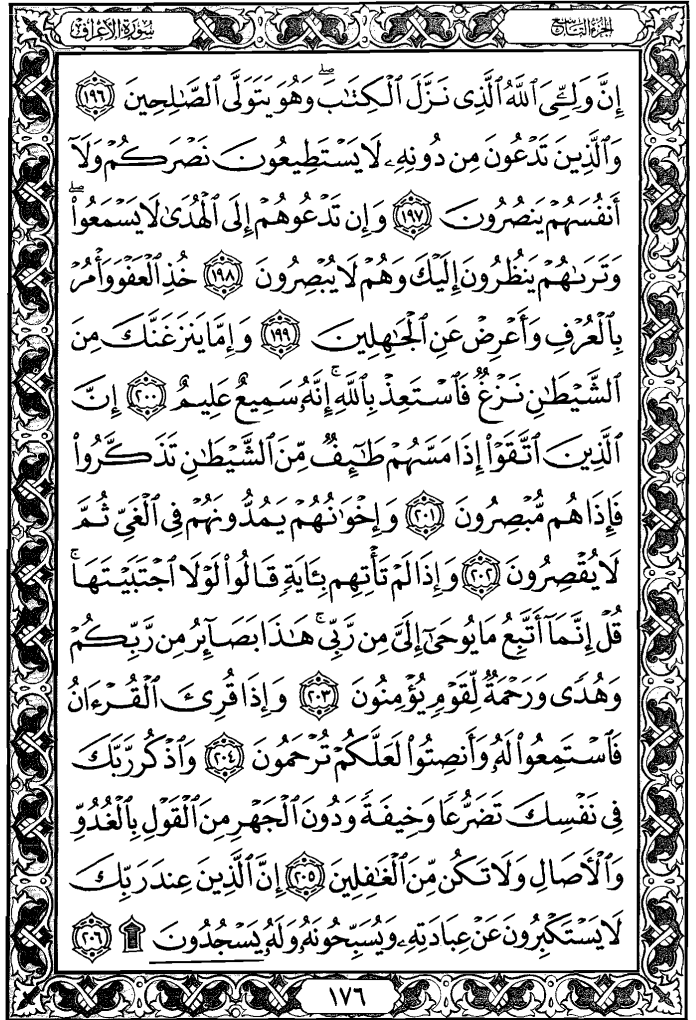 الجزء التاسع
سورة الأعراف
إِنَّ وَلِـِّۧىَ ٱللَّهُ ٱلَّذِى نَزَّلَ ٱلْكِتَٰبَ ۖ وَهُوَ يَتَوَلَّى ٱلصَّٰلِحِينَ ١٩٦
وَٱلَّذِينَ تَدْعُونَ مِن دُونِهِۦ لَا يَسْتَطِيعُونَ نَصْرَكُمْ وَلَآ
أَنفُسَهُمْ يَنصُرُونَ ١٩٧ وَإِن تَدْعُوهُمْ إِلَى ٱلْهُدَىٰ لَا يَسْمَعُوا۟ ۖ
وَتَرَىٰهُمْ يَنظُرُونَ إِلَيْكَ وَهُمْ لَا يُبْصِرُونَ ١٩٨ خُذِ ٱلْعَفْوَ وَأْمُرْ
بِٱلْعُرْفِ وَأَعْرِضْ عَنِ ٱلْجَٰهِلِينَ ١٩٩ وَإِمَّا يَنزَغَنَّكَ مِنَ
ٱلشَّيْطَٰنِ نَزْغٌ فَٱسْتَعِذْ بِٱللَّهِ ۚ إِنَّهُۥ سَمِيعٌ عَلِيمٌ ٢٠٠ إِنَّ
ٱلَّذِينَ ٱتَّقَوْا۟ إِذَا مَسَّهُمْ طَٰٓئِفٌ مِّنَ ٱلشَّيْطَٰنِ تَذَكَّرُوا۟
فَإِذَا هُم مُّبْصِرُونَ ٢٠١ وَإِخْوَٰنُهُمْ يَمُدُّونَهُمْ فِى ٱلْغَىِّ ثُمَّ
لَا يُقْصِرُونَ ٢٠٢ وَإِذَا لَمْ تَأْتِهِم بِـَٔايَةٍ قَالُوا۟ لَوْلَا ٱجْتَبَيْتَهَا ۚ
قُلْ إِنَّمَآ أَتَّبِعُ مَا يُوحَىٰٓ إِلَىَّ مِن رَّبِّى ۚ هَٰذَا بَصَآئِرُ مِن رَّبِّكُمْ
وَهُدًى وَرَحْمَةٌ لِّقَوْمٍ يُؤْمِنُونَ ٢٠٣ وَإِذَا قُرِئَ ٱلْقُرْءَانُ
فَٱسْتَمِعُوا۟ لَهُۥ وَأَنصِتُوا۟ لَعَلَّكُمْ تُرْحَمُونَ ٢٠٤ وَٱذْكُر رَّبَّكَ
فِى نَفْسِكَ تَضَرُّعًا وَخِيفَةً وَدُونَ ٱلْجَهْرِ مِنَ ٱلْقَوْلِ بِٱلْغُدُوِّ
وَٱلْءَاصَالِ وَلَا تَكُن مِّنَ ٱلْغَٰفِلِينَ ٢٠٥ إِنَّ ٱلَّذِينَ عِندَ رَبِّكَ
لَا يَسْتَكْبِرُونَ عَنْ عِبَادَتِهِۦ وَيُسَبِّحُونَهُۥ وَلَهُۥ يَسْجُدُونَ ۩ ٢٠٦
١٧٦